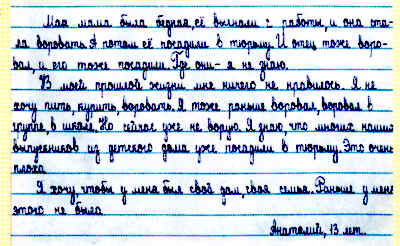 Моя мама была бедная, её выгнали с работы, и она ста-
ла воровать. А потом её посадили в тюрьму. И отец тоже воро-
вал, и его тоже посадили. Где они - я не знаю.
В моей прошлой жизни мне ничего не нравилось. Я не
хочу пить, курить, воровать. Я тоже раньше воровал, воровал в
группе, в школе. Но сейчас уже не ворую. Я знаю, что многих наших
выпускников из детского дома уже посадили в тюрьму. Это очень
плохо
Я хочу, чтобы у меня был свой дом, своя семья. Раньше у меня
этого не было
Анатолий, 13 лет.